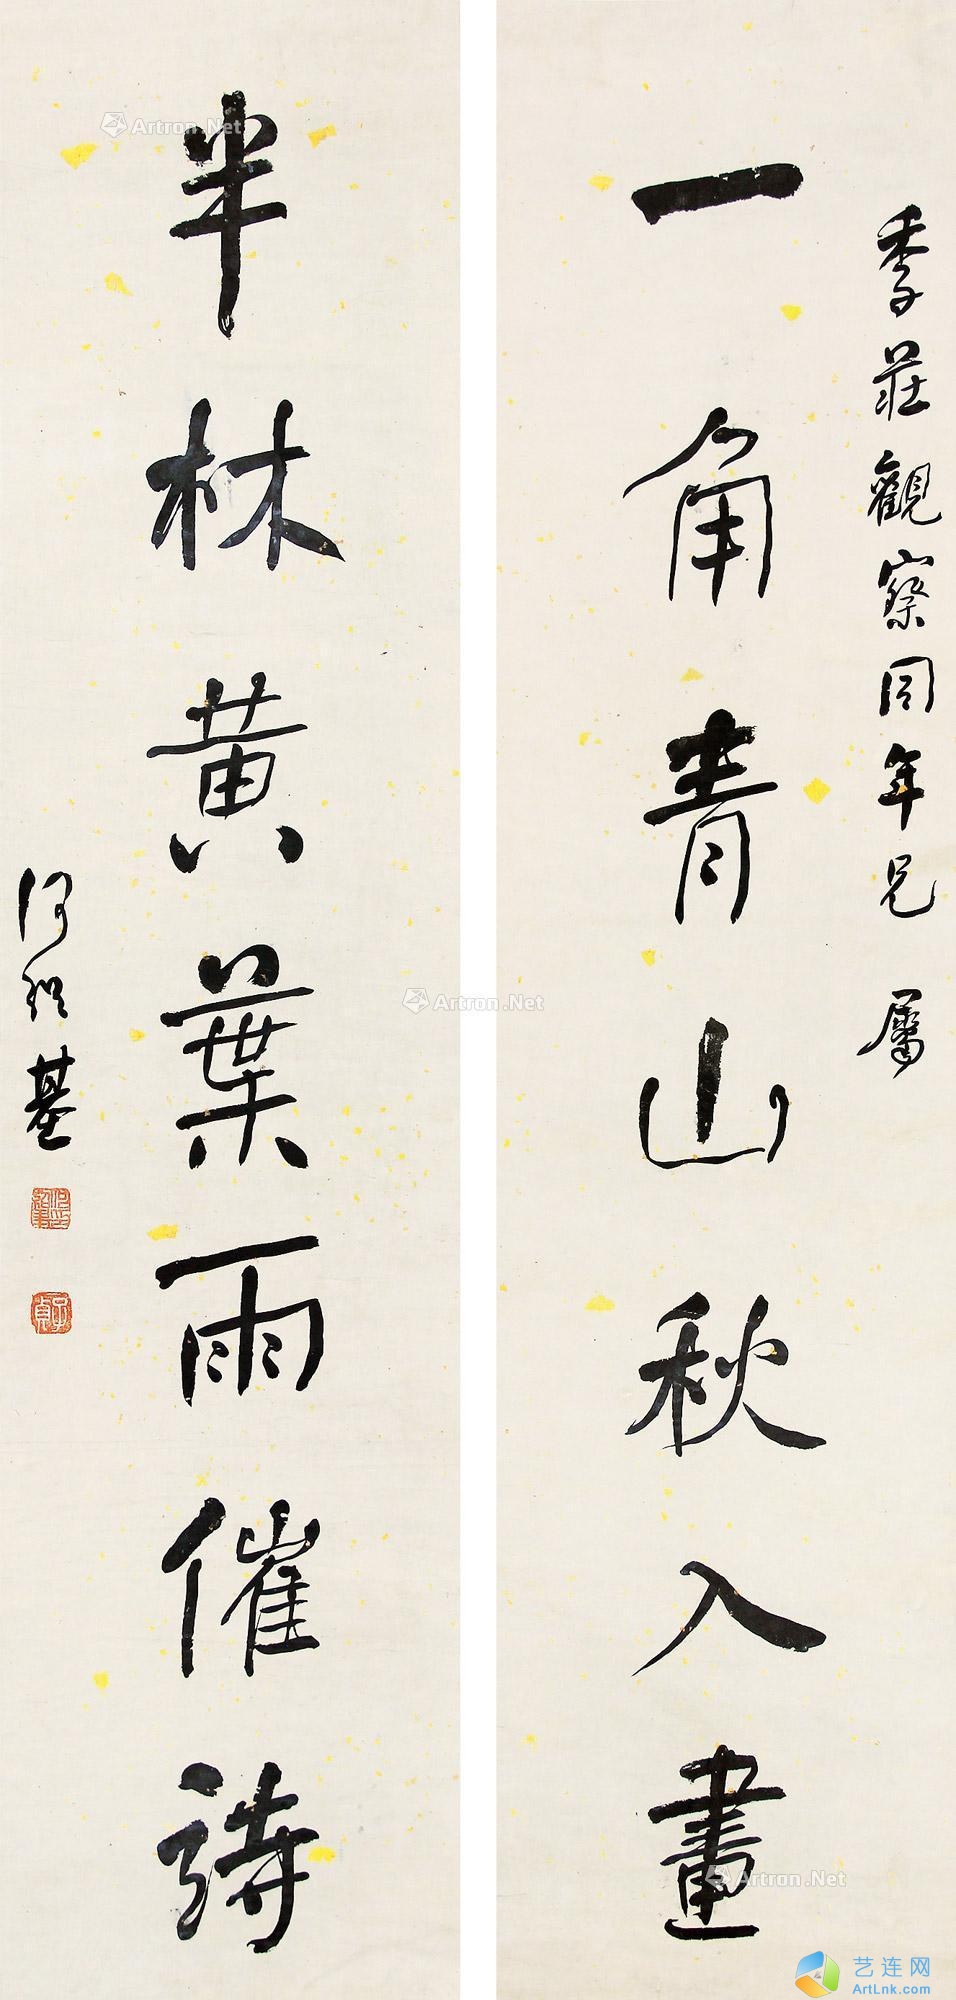 季莊觀察同年兄屬
一角青山秋入畫
半林黄葉雨催詩
何紹基
子貞
Artron.Net
Artron.Net
Artron.Net
艺连网
ArtLnk.com